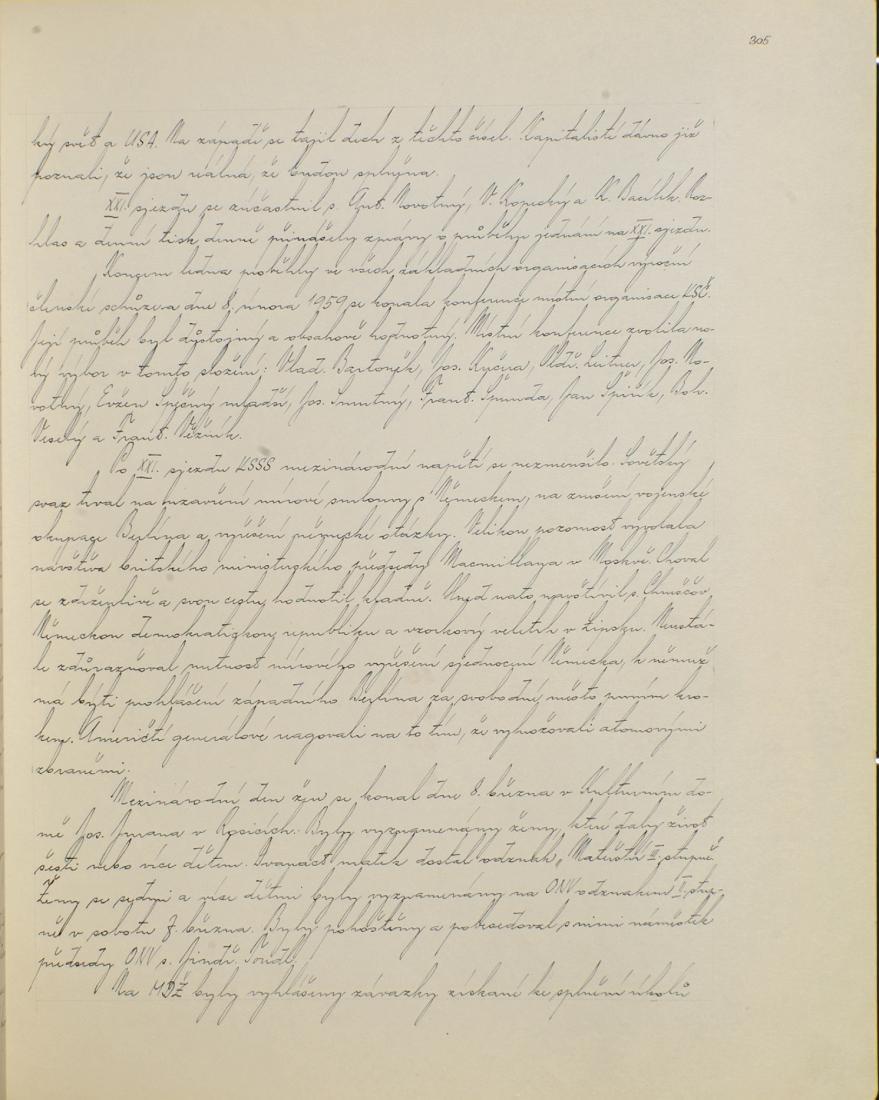 305
ký svět a USA. Na západě se tajil dech z těchto čísel. Kapitalisté dávno již
poznali, že jsou reálná, že budou splněna.
XXI. sjezdu se zúčastnil s. Ant. Novotný, V. Kopecký a K. Bacílek. Roz-
hlas a denní tisk denně přinášely zprávy o průběhu jednání na XXI. sjezdu.
Koncem ledna proběhly ve všech základních organisacích výroční
členské schůze a dne 8. února 1959 se konala konference místní organisace KSČ.
Její průběh byl důstojný a obsahově hodnotný. Místní konference zvolila no-
vý výbor v tomto složení: Vlad. Bartoněk, Jos. Kyčera, Oldř. Leitner, Jos. No-
votný, Evžen Sněčný mladší, Jos. Smutný, Frant. Špunda, Jan Špirík, Boh.
Veselý a Frant. Věžník.
Po XXI. sjezdu KSSS mezinárodní napětí se nezmenšilo. Sovětský
svaz trval na uzavření mírové smlouvy s Německem, na zrušení vojenské
okupace Berlína a vyřešení německé otázky. Velikou pozornost vyvolala
návštěva britského ministerského předsedy Macmillana v Moskvě. Choval
se zdrženlivě a svou cestu hodnotil kladně. Hned nato navštívil s. Chruščov
Německou demokratickou republiku a vzorkový veletrh v Lipsku. Neustá-
le zdůrazňoval nutnost mírového vyřešení sjednocení Německa, k němuž
má býti prohlášení západního Berlína za svobodné město prvním kro-
kem. Američtí generálové reagovali na to tím, že vyhrožovali atomovými
zbraněmi.
Mezinárodní den žen se konal dne 8. března v Kulturním do-
mě Jos. Jurana v Rosicích. Byly vyznamenány ženy, které daly život
šesti nebo více dětem. Dvanáct matek dostal odznak „Mateřství II. stupně.
Ženy se sedmi a více dětmi byly vyznamenány na ONV odznakem I. stup-
ně v sobotu 7. března. Byly pohoštěny a pobesedoval s nimi náměstek
předsedy ONV s. Jindř.
Na MDŽ byly vyhlášeny závazky získané ke splnění úkolů